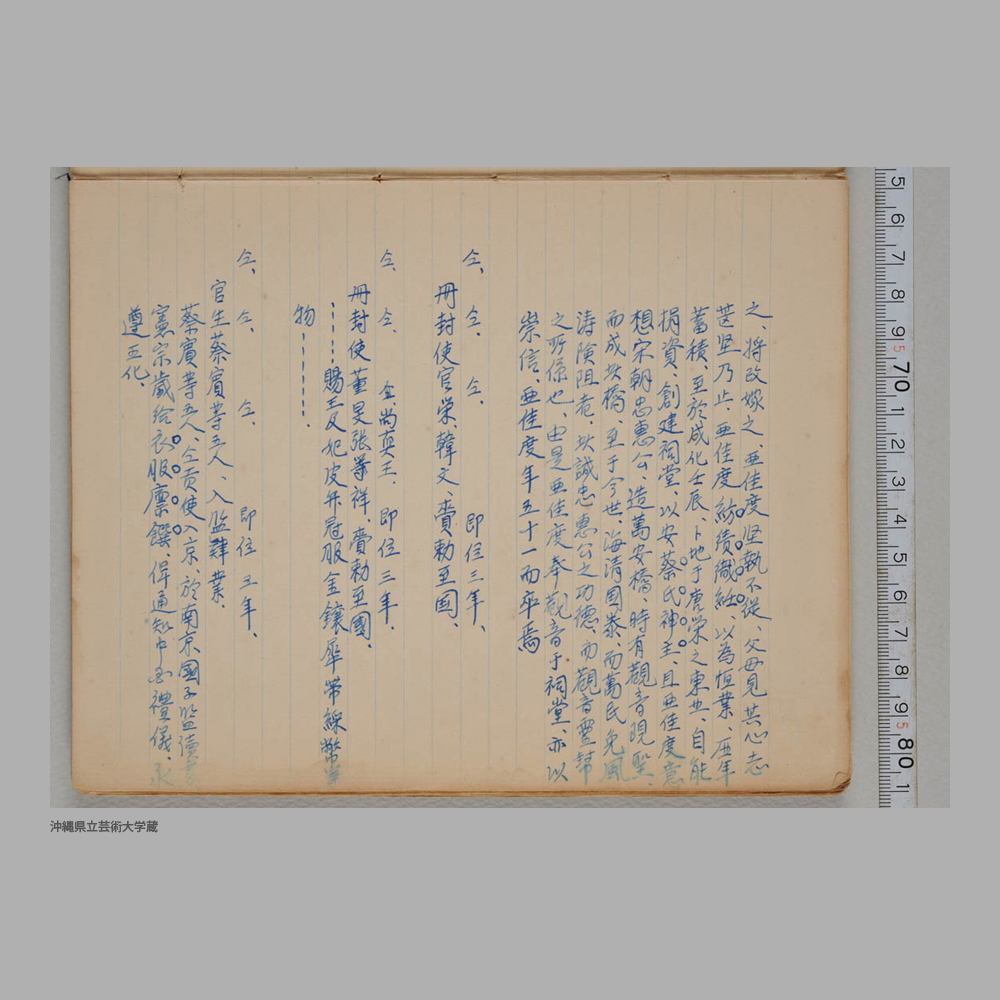 之、将改嫁之、亜佳度坚執不從、父母見其心志
甚坚乃止、亜佳度紡績織紝、以為恒業、历年
蓄積、至於成化壬辰、卜地于唐栄之東、自能
捐資、創建祠堂、以安蔡氏神主、且亜佳度意
想宋朝忠惠公、造萬安橋、時有觀音現聖、
而成此橋、至于今世、海清国泰、而萬民免風
涛険阻者、此誠忠惠公之功德、而觀音靈幇
之所保也、由是亜佳度奉觀音于祠堂、亦以
崇信、亜佳度年五十一而卒焉
仝、仝、仝、即位三年、
冊封使官栄、韓文、賚勅至国、
仝、仝、仝尚真王、即位三年、
冊封使董旻張祥、賚勅至國、
……賜王及妃皮弁冠服金鑲犀帯綵幣等
物………
仝、仝、仝、即位五年、
官生蔡賓等五人、入監肄業、
蔡賓等五人、仝貢使入京、於南京國子監讀書
憲宗歳給衣服廩饌、俾通知中国禮儀、永
遵王化、
5 6 7 8 9 5 70 1 2 3 4 5 6 7 8 9 5 80 1
沖縄県立芸術大学蔵